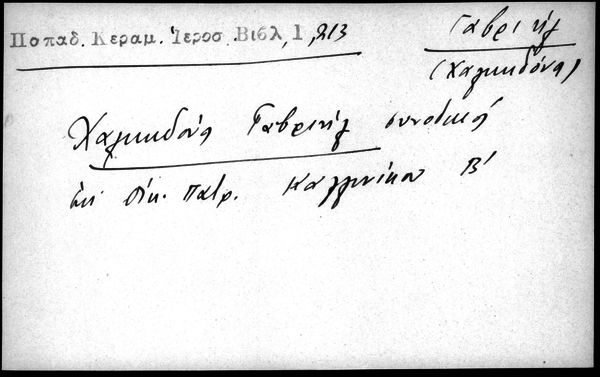 Παπαδ. Κεραμ. Ἱεροσ. Βιβλ, Ι, 213
Γαβριήλ
(Χαλκηδόνος)
Χαλκηδόνος Γαβριήλ συνοδικός
ἐπὶ Οἰκ. Πατρ. Καλλινίκου Β'